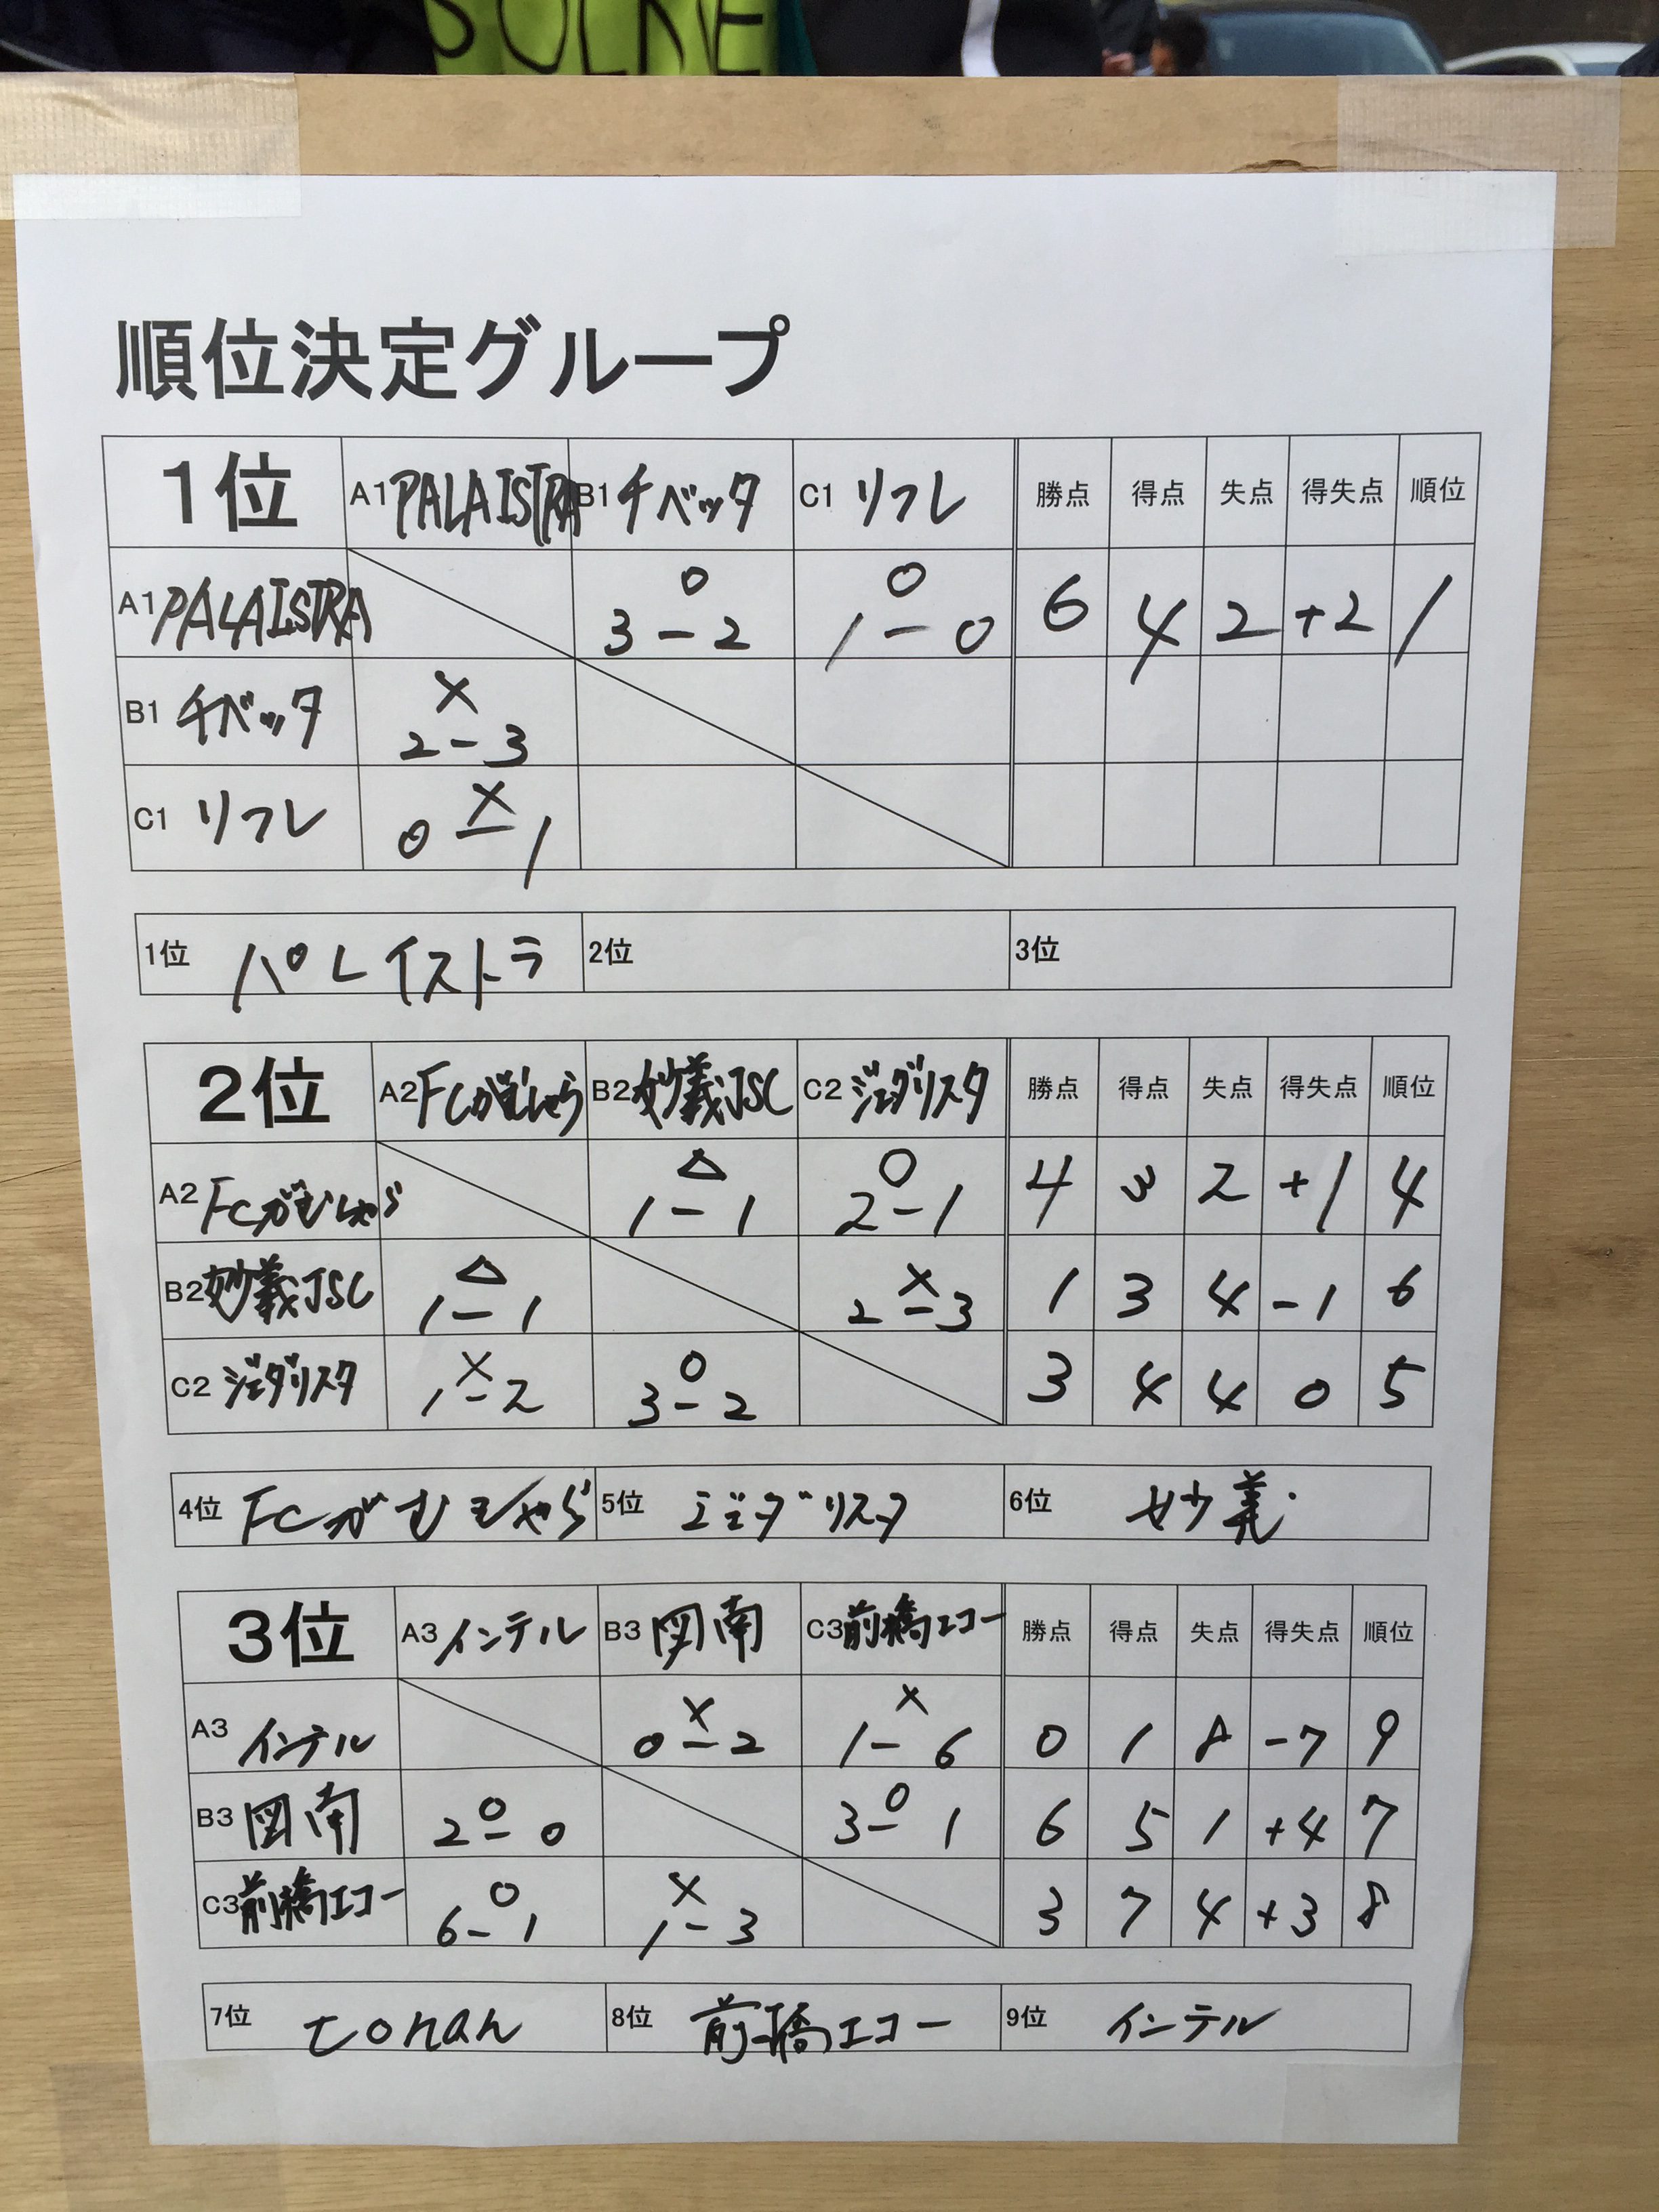 SOLNE
順位決定グループ
1位 A1 PALAISTRA B1 チベッタ C1 リフレ 勝点 得点 失点 得失点 順位
A1 PALAISTRA ○ 3-2 ○ 1-0 6 4 2 +2 1
B1 チベッタ × 2-3
C1 リフレ × 0-1
1位 パレイストラ 2位 3位
2位 A2 FCがむしゃら B2 妙義JSC C2 ジェダリスタ 勝点 得点 失点 得失点 順位
A2 FCがむしゃら △ 1-1 ○ 2-1 4 3 2 +1 4
B2 妙義JSC △ 1-1 × 2-3 1 3 4 -1 6
C2 ジェダリスタ × 1-2 ○ 3-2 3 4 4 0 5
4位 FCがむしゃら 5位 ジェダリスタ 6位 妙義
3位 A3 インテル B3 図南 C3 前橋エコー 勝点 得点 失点 得失点 順位
A3 インテル × 0-2 × 1-6 0 1 8 -7 9
B3 図南 ○ 2-0 ○ 3-1 6 5 1 +4 7
C3 前橋エコー ○ 6-1 × 1-3 3 7 4 +3 8
7位 tonan 8位 前橋エコー 9位 インテル